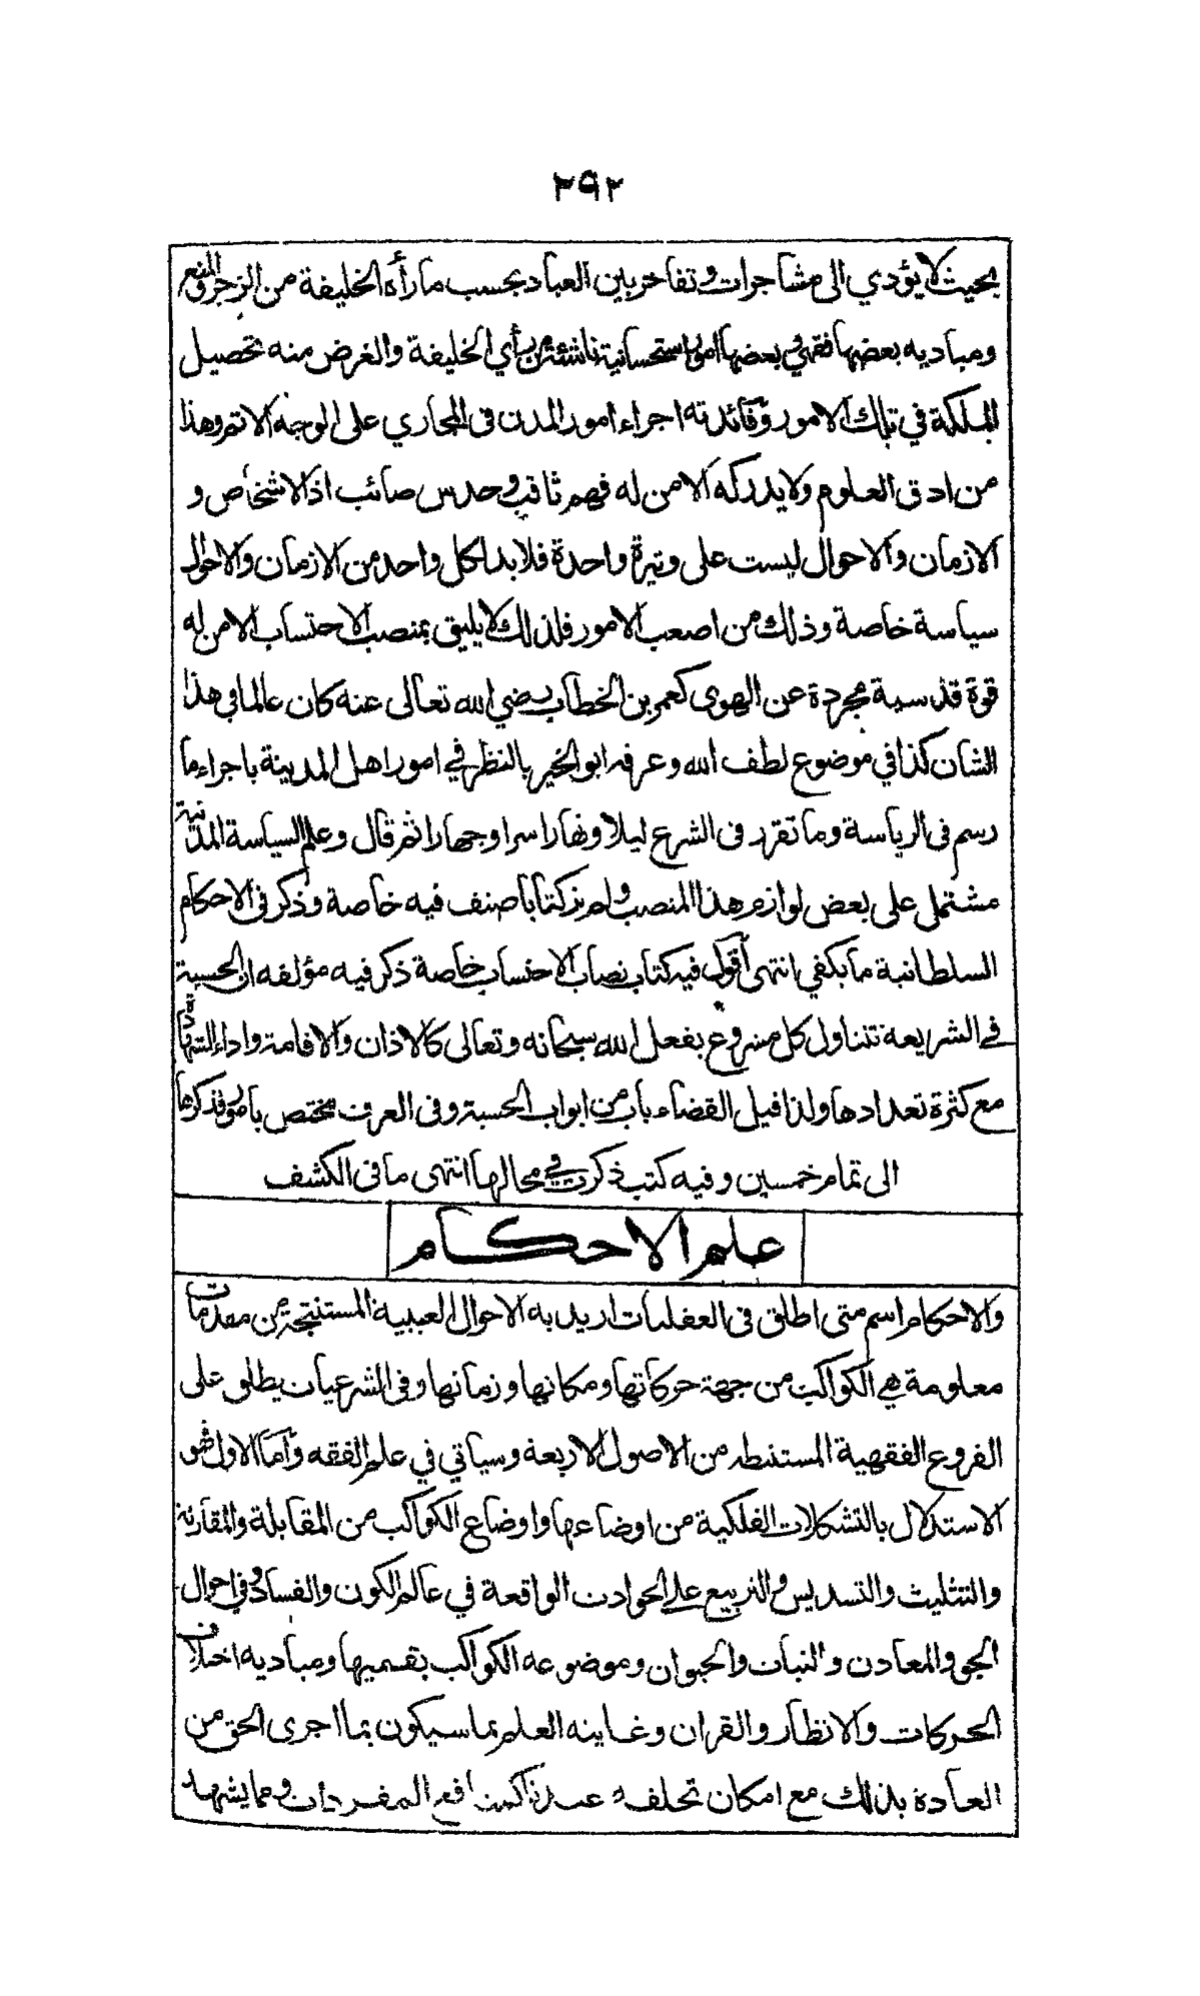 ٢٩٢
بحيث لا يؤدي الى مشاجرات وتفاخر بين العباد بحسب ما رأه الخليفة من الزجر والمنع
ومباديه بعضها فقهي وبعضها امور استحسانية ناشئة من رأي الخليفة والغرض منه تحصيل
الملكة في تلك الامور وفائدته اجراء امور المدن في المجاري على الوجه الاتم وهذا
من ادق العلوم ولا يدركه الا من له فهم ثاقب وحدس صائب اذ الاشخاص و
الازمان والاحوال ليست على وتيرة واحدة فلا بد لكل واحد من الازمان والاحوال
سياسة خاصة وذلك من اصعب الامور فلذلك لا يليق بمنصب الاحتساب الا من له
قوة قدسية مجردة عن الهوى كعمر بن الخطاب رضي الله تعالى عنه كان عالما في هذا
الشان كذا في موضوع لطف الله وعرفه ابو الخير بالنظر في امور اهل المدينة باجراء ما
رسم في الرياسة وما تقرر في الشرع ليلا ونهارا سرا وجهارا ثم قال وعلم السياسة المدنية
مشتمل على بعض لوازم هذا المنصب ولم نر كتابا صنف فيه خاصة وذكر في الاحكام
السلطانية ما يكفي انتهى أقول فيه كتاب نصاب الاحتساب خاصة ذكر فيه مؤلفه ان الحسبة
في الشريعة تتناول كل مشروع بفعل الله سبحانه وتعالى كالاذان والاقامة واداء الشهادة
مع كثرة تعدادها ولذا قيل القضاء باب من ابواب الحسبة وفي العرف مختص بامور فذكرها
الى تمام خمسين وفيه كتب ذكرت في محالها انتهى ما في الكشف
علم الاحكام
والاحكام اسم متى اطلق في العقليات اريد به الاحوال الغيبية المستنتجة من مقدمات
معلومة هي الكواكب من جهة حركاتها ومكانها وزمانها وفي الشرعيات يطلق على
الفروع الفقهية المستنبطه من الاصول الاربعة وسياتي في علم الفقه وأما الاول فهو
الاستدلال بالتشكلات الفلكية من اوضاعها واوضاع الكواكب من المقابلة والمقارنة
والتثليث والتسديس والتربيع على الحوادث الواقعة في عالم الكون والفساد وفي احوال
الجو والمعادن والنبات والحيوان وموضوعه الكواكب بقسميها ومباديه اختلاف
الحركات والانظار والقران وغاينه العلم بما سيكون بما اجرى الحق من
العادة بذلك مع امكان تخلفه عندنا كمنافع المفردات ومما يشهد